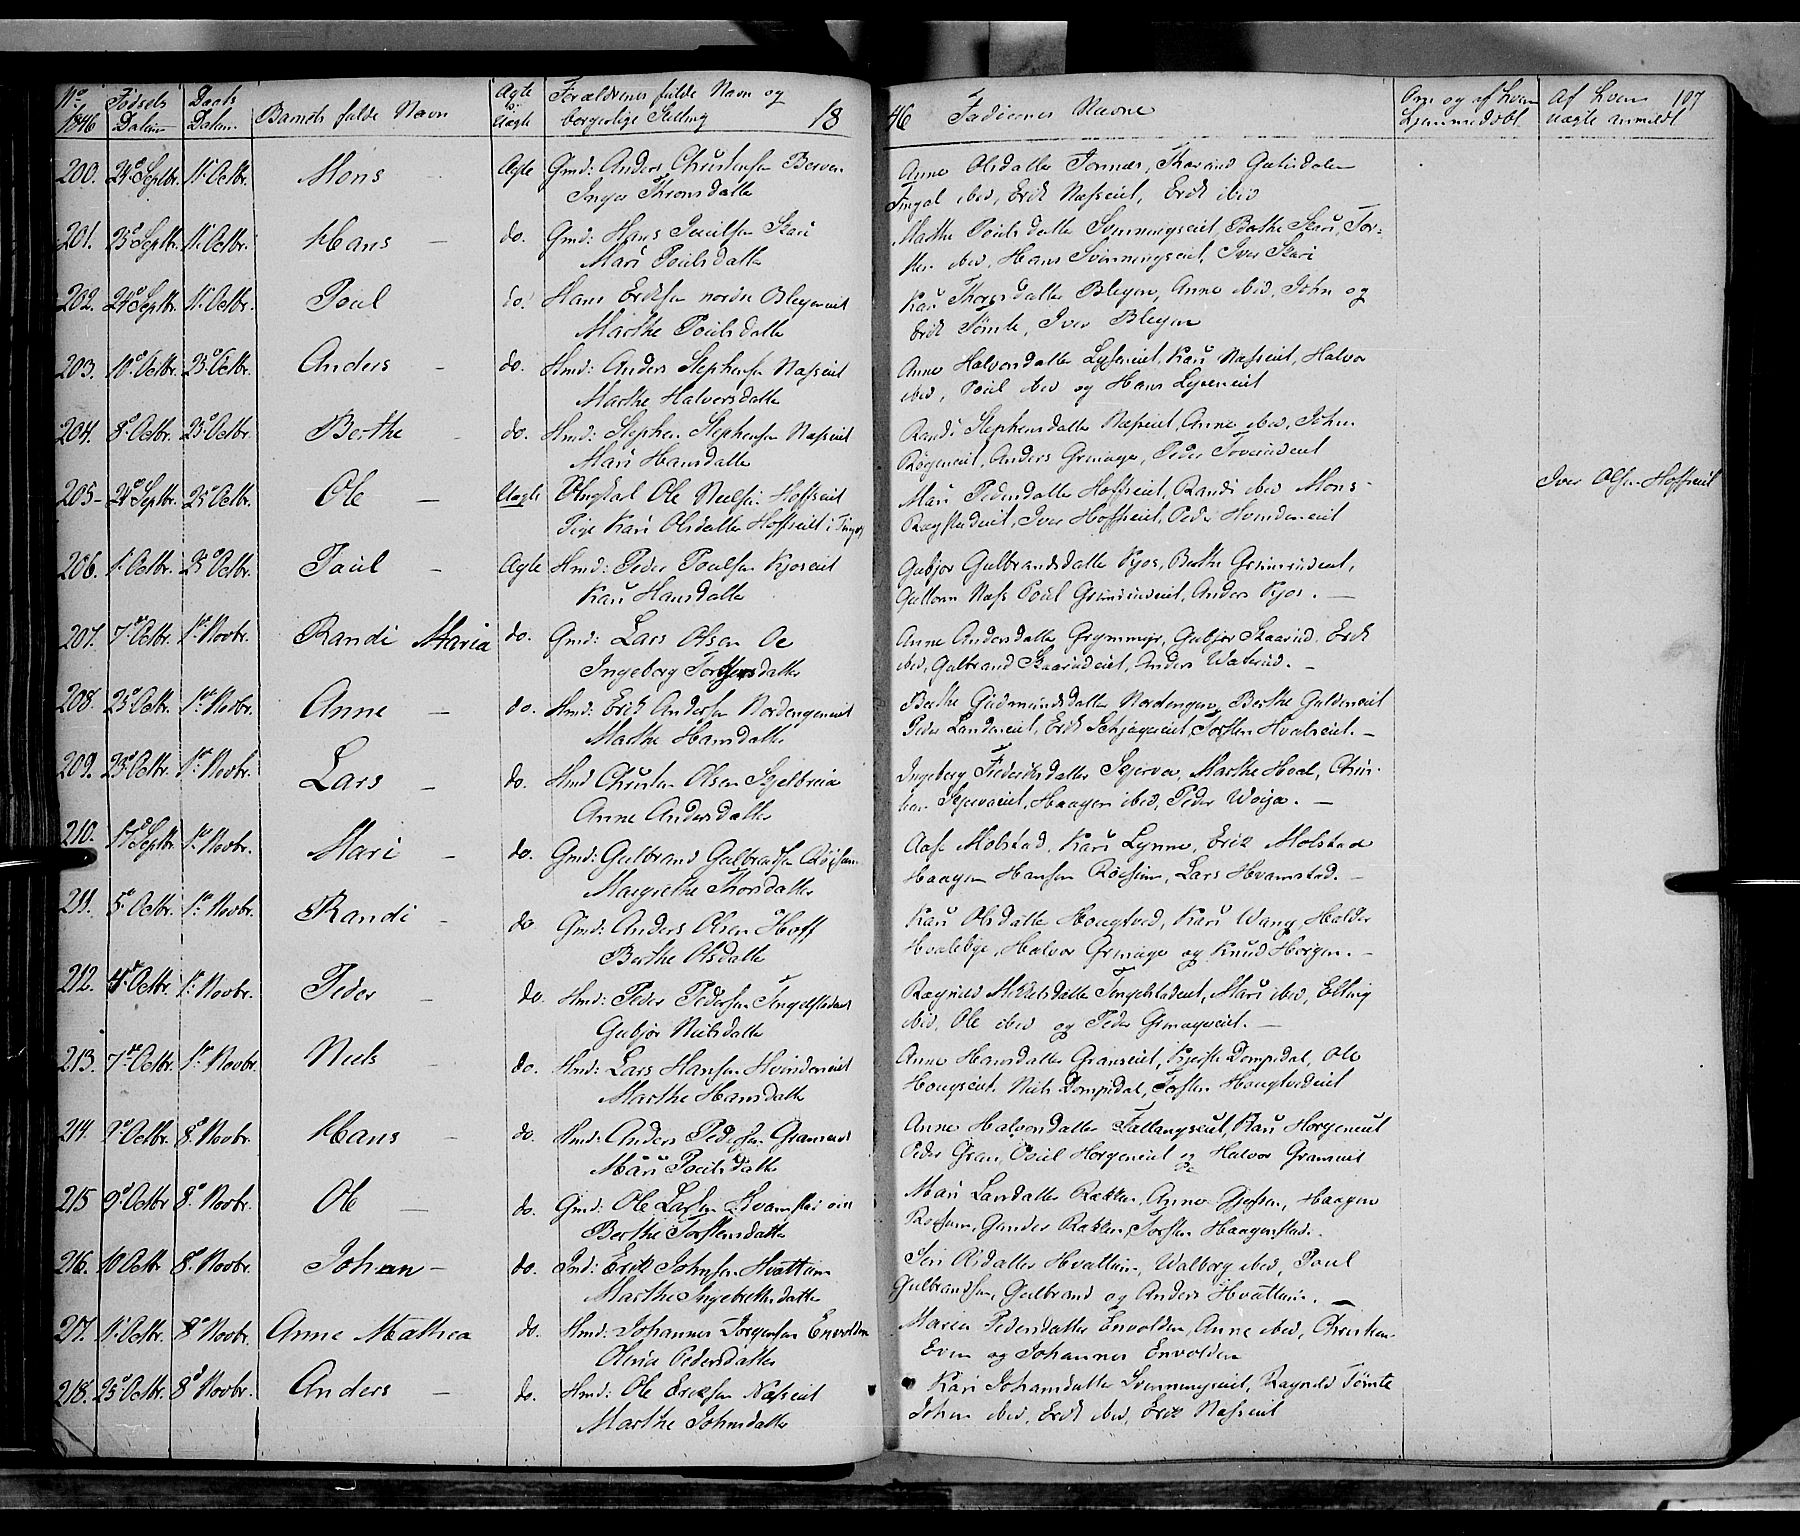 No 1846 Fødsels Datum Daabs Datum Barnets fulde Navn Ægte v: Uægte Forældrenes fulde Navn og borgerlige Stilling 18
46 Faddernes Navne Om og af hvem hjemmedøbt Af hvem uægte anmeldt 107
200. 24 Septbr. 11 Octbr. Mons - Ægte Gmd: Anders Christensen
Inger Thronsdatter
Anne Olsdatter
ibid, Erik Næsseiet, Erik ibid
201. 25 Septbr. 11 Octbr. Hans - do. Gmd: Hans Poulsen Skari
Mari Poulsdatter
Marthe Poulsdatter Svenningseiet, Berthe Skari, Tor-
sten ibid, Hans Svenningseiet, Iver Skari
202. 24 Septbr. 11 Octbr. Poul do. Hans Eriksen nordre Blegeneiet
Marthe Poulsdatter
Kari Thorsdatter Blegen, Anne ibid, John og
Erik Tømte, Iver Blegen
203. 10 Octbr. 25 Octbr. Anders - do. Hmd: Anders Stephensen Næsseiet
Marthe Halvorsdatter
Anne Halvorsdatter, Kari Næsseiet, Halvor
ibid, Poul ibid og Hans
204. 8 Octbr. 25 Octbr. Berthe - do. Hmd: Stephen Stephensen Næsseiet
Mari Hansdatter
Randi Stephensdatter Næsseiet, Anne ibid, John
Anders Grinager, Peder
205 - 24 Septbr. 25 Octbr. Ole - Uægte Ungkal Ole Nielsen Hoffseiet
Pige Kari Olsdatter Hoffseiet i
Mari Pedersdatter Hoffseiet, Randi ibid Mons
Iver Hoffseiet, Peder Hvindeneiet
Iver Olsen Hoffseiet
206. 1 Octbr. 25 Octbr. Poul - Ægte Hmd: Peder Poulsen Kjoseiet
Kari Hansdatter
Gubjør Gulbrandsdatter Kjos, Berthe Grimsrudeiet,
Guttorm Næss Poul Grimsrudeiet, Anders Kjos. -
207. 7 Octbr. 1 Novbr. Randi Maria do. Gmd: Lars Olsen Oe
Ingeborg Torstensdatter
Anne Andersdatter Grymmyr, Gubjør Skaarud, Erik
ibid, Gulbrand Skaarudeiet, Anders Waterud. -
208. 25 Octbr. 1 Novbr. Anne - do. Hmd: Erik Andersen Nordengeneiet
Marthe Hansdatter
Berthe Gudmundsdatter Nordengen, Berthe Guldeneiet
Peder Landeneiet, Erik Torsten Hvaleiet. -
209. 23 Octbr. 1 Novbr. Lars - do. Hmd Christen Olsen Skjelbreia
Anne Andersdatter
Ingeborg Frederiksdatter Skjerva, Marthe Hval, Chris-
ten Haagen ibid, Peder Woija. -
210. 17 Septbr. 1 Novbr. Mari - do. Gmd: Gulbrand Gulbrandsen Røisum
Margrethe Thorsdatter
Aase Molstad, Kari Lynne, Erik Molstad
Haagen Hansen Røisum, Lars Hvamstad. -
211. 5 Octbr. 1 Novbr. Randi - do Gmd: Anders Olsen Hoff
Berthe Olsdatter
Kari Olsdatter Hougtved, Kari Wang, Halvor
Hvalebye, Halvor Grinager og Knud Horgen. -
212. 4 Octbr. 1 Novbr. Peder - do. Hmd: Peder Pedersen
Gubjør Nielsdatter
Ragnild Mari ibid, Elling
ibid, Ole ibid og Peder Grinagereiet. -
213. 7 Octbr. 1 Novbr. Niels - do. Hmd: Lars Hansen Hvindeneiet
Marthe Hansdatter
Anne Hansdatter Granseiet, Kjersti Dompidal, Ole
Hougseiet Niels Dompidal, Torsten Hougtvedeiet
214. 2 Octbr. 8 Novbr. Hans - do. Hmd: Anders Pedersen Graneiet
Mari Poulsdatter
Anne Halvorsdatter Fallangseiet, Kari Horgeneiet
Peder Gran, Poul Horgeneiet og Halvor Graneiet
215 9 Octbr 8 Novbr. Ole - do. Gmd: Ole Larsen Hvamstad
Berthe Torstensdatter
Mari Larsdatter Rækken, Anne Haagen
Røisum, Gunder Rækken, Torsten Haagenstad.
216. 10 Octbr 8 Novbr. Johan - do. Ind: Erik Johnsen Hvattum
Marthe Ingebretsdatter
Siri Olsdatter Hvattum, Walborg ibid, Poul
Gulbrandsen, Gulbrand og Anders Hvattum. -
217. 11 Octbr. 8 Novbr. Anne Mathea do. Hmd: Johannes Jørgensen Envolden
Olenie Pedersdatter
Maren Pedersdatter Envolden, Anne ibid, Christian
Even og Johannes Envolden
218. 25 Octbr. 8 Novbr. Anders - do. Hmd: Ole Eriksen Næsseiet
Marthe Johnsdatter
Kari Johansdatter Svenningseiet, Ragnild Tømte
Johan ibid, Erik ibid, Erik Næsseiet